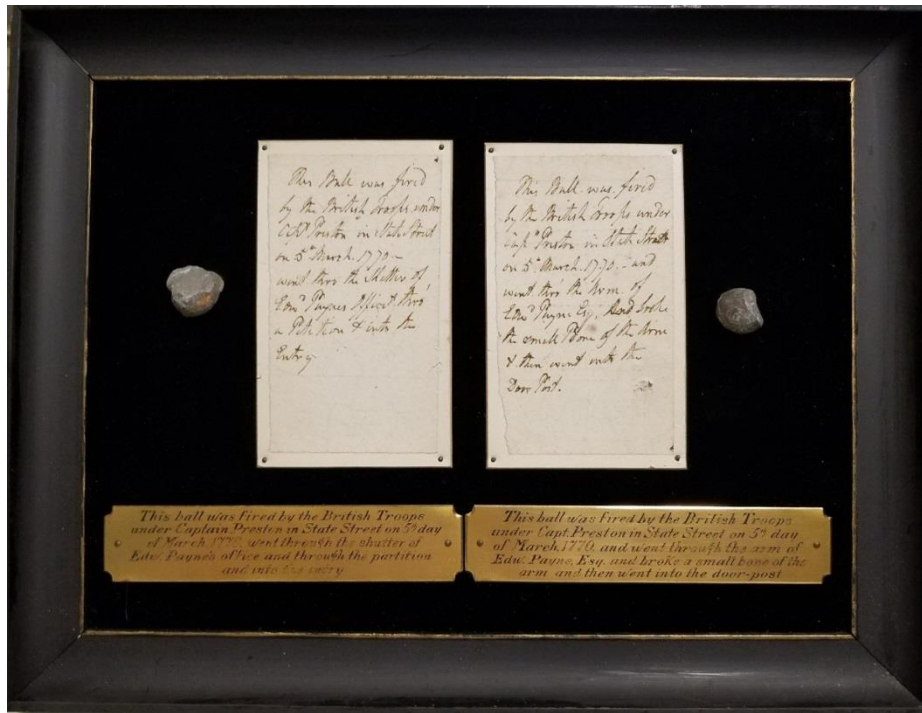 This Ball was fired
by the British Troops under
Capt. Preston in State Street
on 5th March 1770 –
went thro the Shutter of
Edwd Paynes Office & thro
a Petition & into the
Entry
This Ball was fired
by the British Troops under
Capt. Preston in State Street
on 5th March 1770 – and
went thro the Arm of
Edwd Payne Esq. And broke
the small Bone of the Arm
& then went into the
Door Post.
This ball was fired by the British Troops
under Captain Preston in State Street on 5th day
of March 1770, went through the shutter of
Edwd. Payne's office and through the partition
and into the entry
This ball was fired by the British Troops
under Capt. Preston in State Street on 5th day
of March, 1770, and went through the arm of
Edwd. Payne, Esq. and broke a small bone of the
arm and then went into the door-post